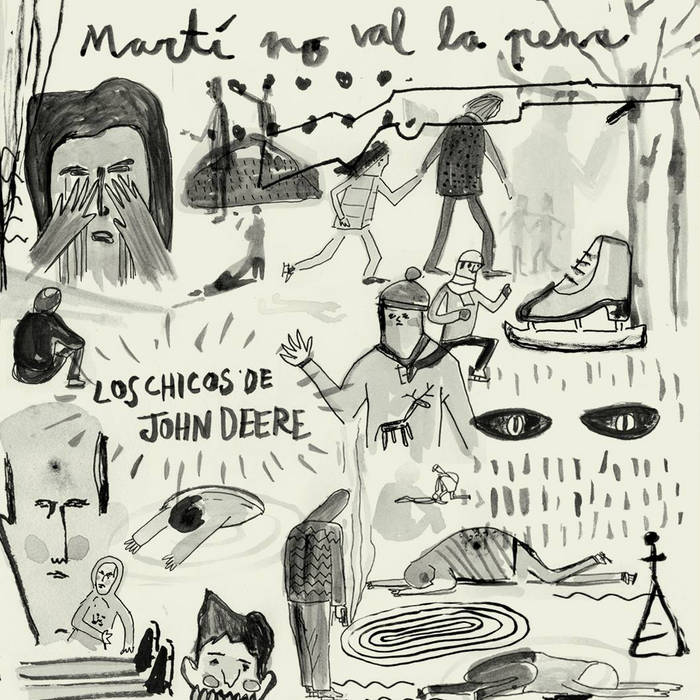 Martí no val la pena
LOS CHICOS DE
JOHN DEERE